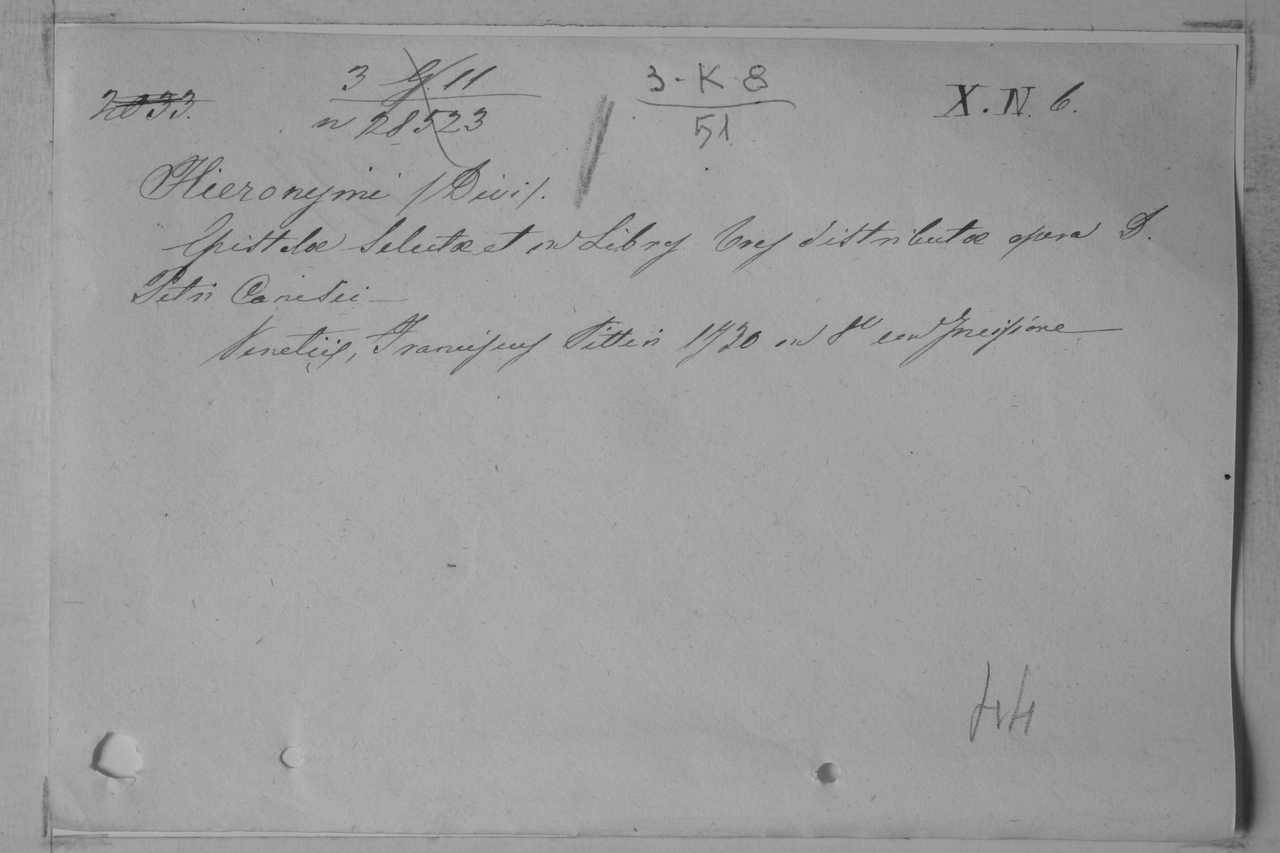 2033. 3 G 11 3-K 8 X. N. 6.
n 28523 51
Hieronymi /Divi/.
Epistolæ Selectæ et in Libros tres distributæ opera D.
Petri Canisii —
Venetiis, Franciscus Pitteri 1730 in 8º con Incisione —
44